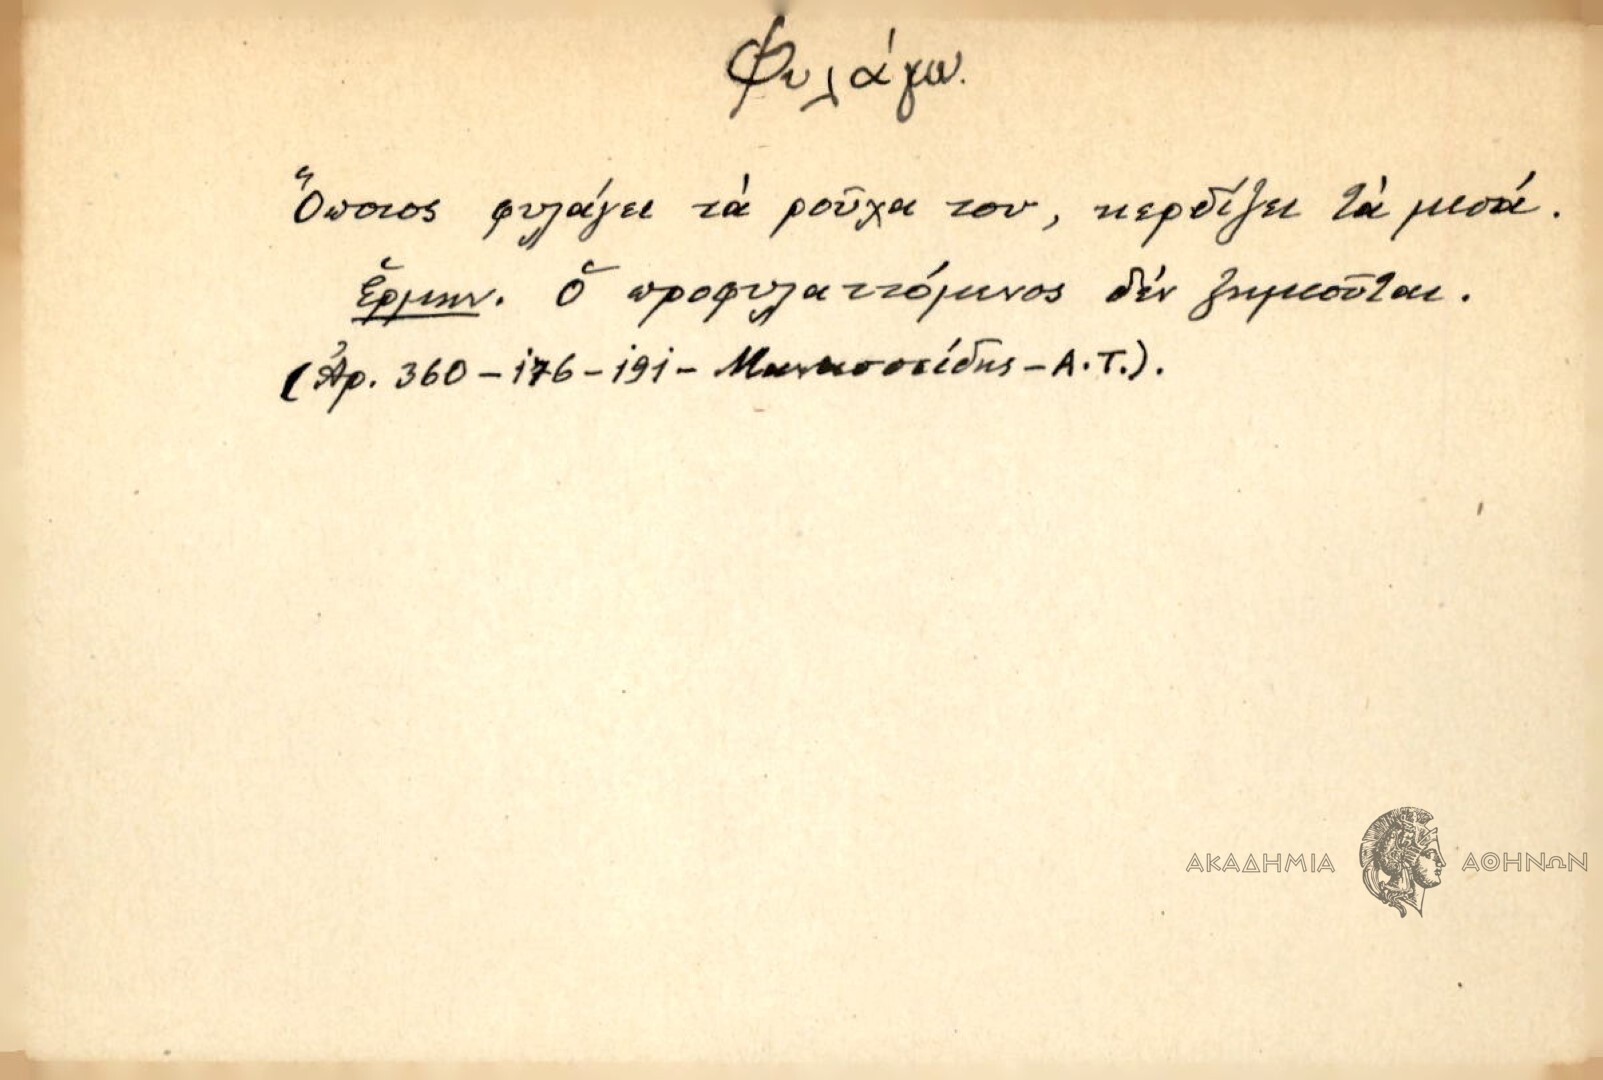 Φυλάγω.
Ὅποιος φυλάγει τὰ ροῦχα του, κερδίζει τὰ μισά.
Ἑρμην. Ὁ προφυλαττόμενος δέν ζημιοῦται.
(Ἀρ. 360 – 176 – 191 – Μανασσείδης – Α.Τ.).
ΑΚΑΔΗΜΙΑ ΑΘΗΝΩΝ